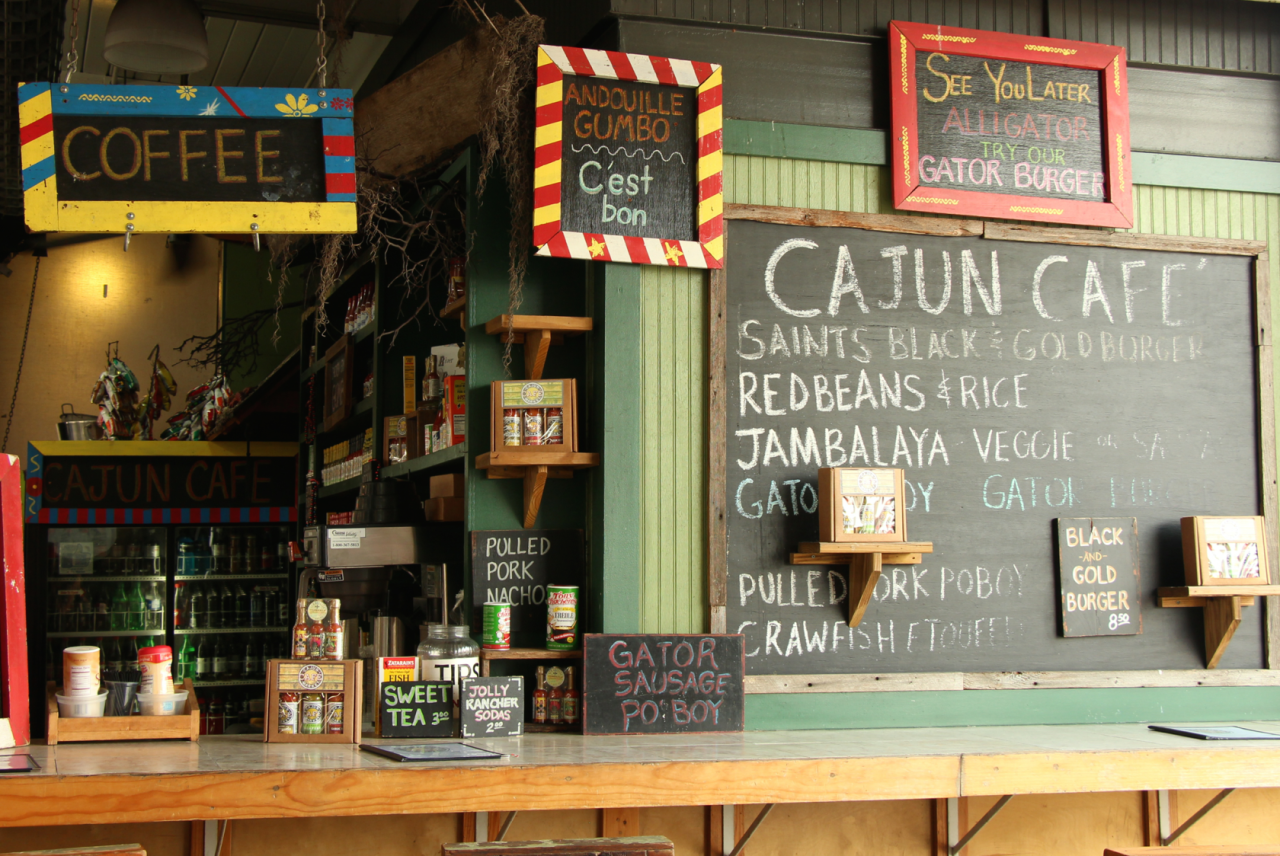 COFFEE
ANDOUILLE
GUMBO
C'est
bon
SEE YOU LATER
ALLIGATOR
TRY OUR
GATOR BURGER
CAJUN CAFE´
SAINTS BLACK & GOLD BURGER
RED BEANS & RICE
JAMBALAYA VEGGIE OR
GATOR
PULLED PORK POBOY
CRAWFISH ETOUFEE
BLACK
-AND-
GOLD
BURGER
8.50
CAJUN CAFE
PULLED
PORK
NACHOS
GATOR
SAUSAGE
PO'BOY
TIPS
FISH
SWEET
TEA 3.00
JOLLY
RANCHER
SODAS
2.00